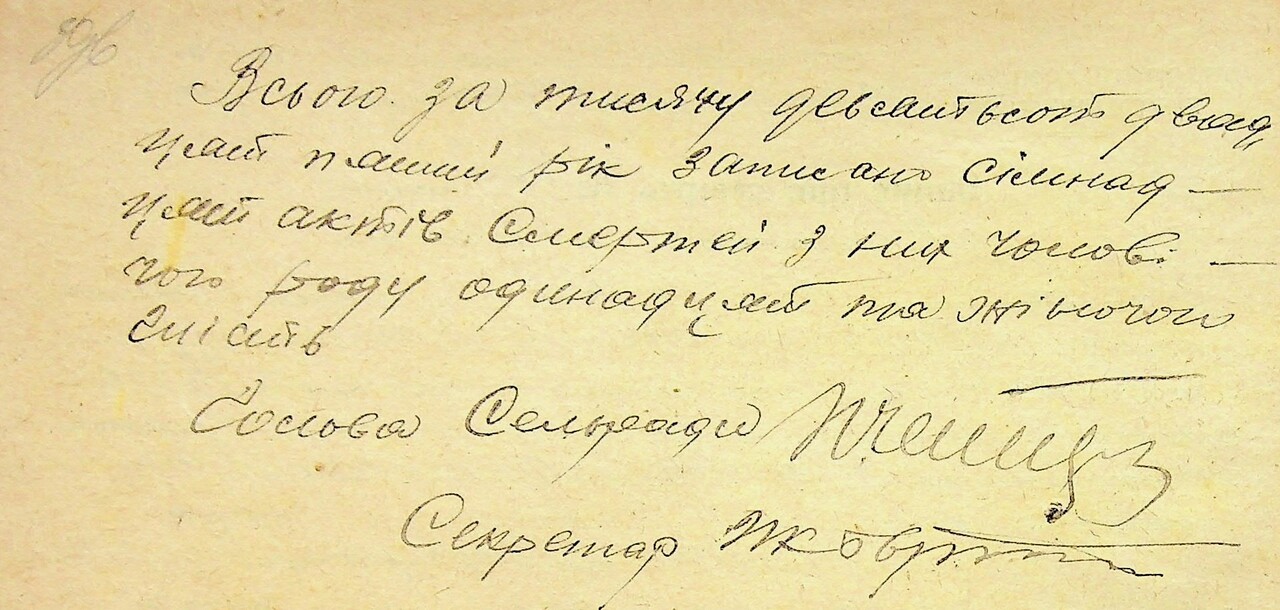 Всього за тисячу девятьсот двад
цят пятий рік записано сімнад —
цят актів смертей з них чолові —
чого роду одинадцят та жіночого
шість
Голова Сельради
Секретар